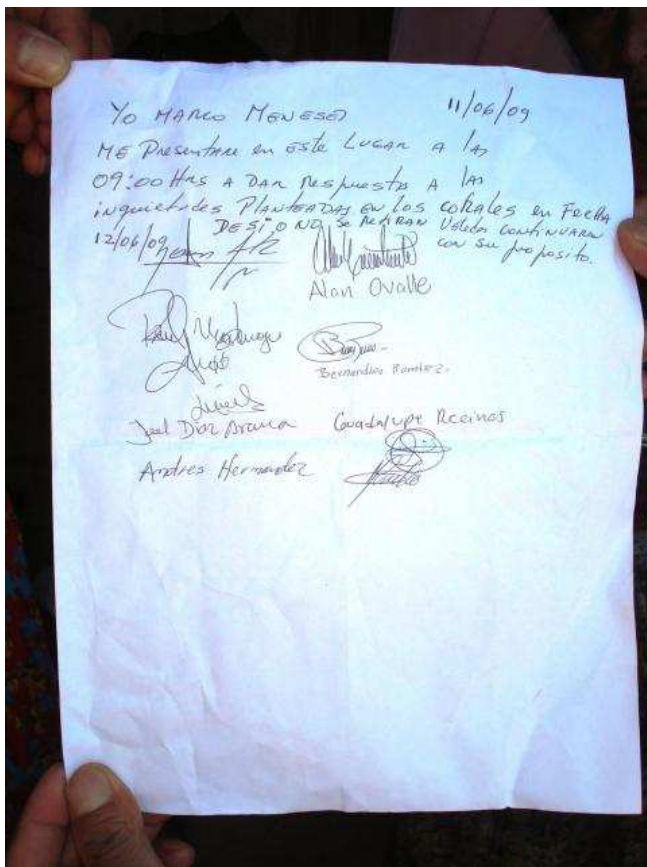 11/06/09
Yo MARCO MENESES
ME Presentare en este LUGAR A las
09:00 Hrs A DAR Respuesta A las
inquietudes PLANTEADAS EN LOS en FECHA
DE SI O NO se RETIRAN Ustedes CONTINUARAN
12/06/09 con su proposito.
Alan Ovalle
Bernardino Ramirez.
Joel Diaz Guadalupe Recinos
Andres Hernandez